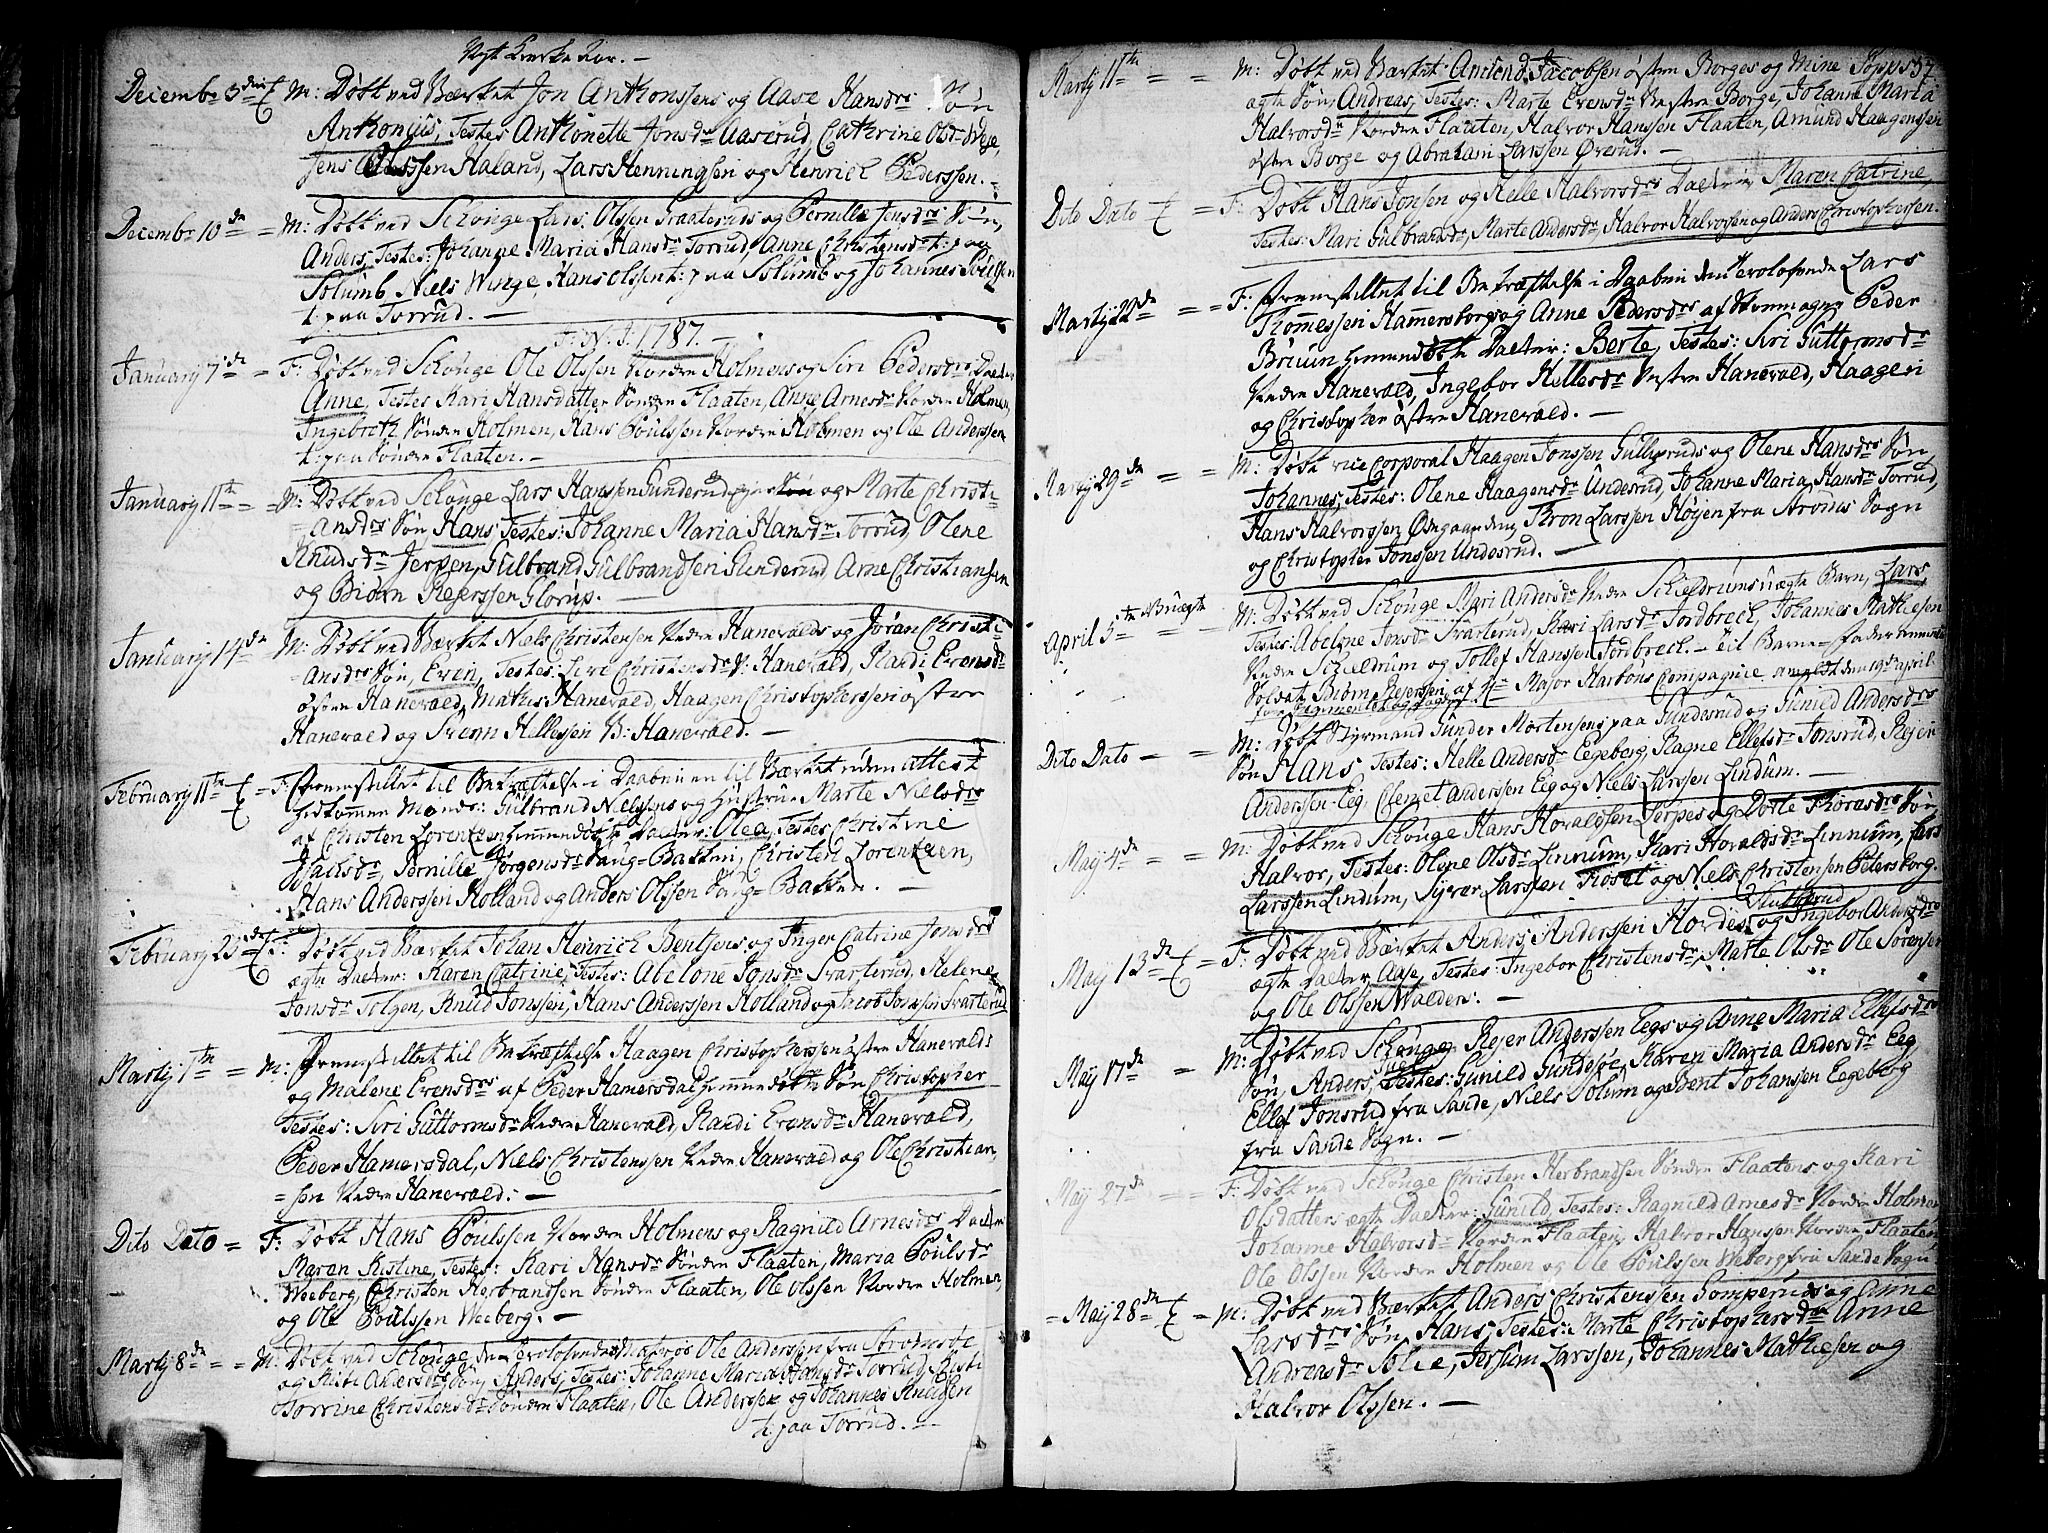 Nyt Kirke Aar. –
Decembr 3die M: Døbt ved Værket Jon Anthonssens og Aase Hansdrs Søn
Anthonius, Testes Anthonette Jonsdr Aaserud, Cathrine Olsdr
Olssen Haland, Lars Henningsen og Henrich Pederssen. –
Decembr 10de = M: Døbt ved Schouge Lars Olssen Svateruds og Pernille Jensdrs Søn,
Anders, Testes: Johanne Maria Hansdr Torrud, Anne Christensdr t: paa
Solumb, Niels Winge, Hans Olssen t: paa Solumb og Johannes Poulsen
t: paa Torrud. –
I: N: J: 1787. –
Januarij 7de = F: Døbt ved Schouge Ole Olssen Nordre Holmens og Siri Pedersdrs Datter
Anne, Testes Kari Hansdatter Søndre Flaaten, Anne Arnesdr Nordre Holmen,
Ingebreth Søndre Holmen, Hans Poulssen Nordre Holmen og Ole Anderssen
t: paa Søndre Flaaten. –
Januarij 11te = M: Døbt ved Schouge Lars Hanssen Gunderud og Marte Christi-
=ansdrs Søn Hans Testes: Johanne Maria Hansdr Torrud, Olene
Knudsdr Jerpen, Gulbrand Gulbrandsen Gunderud, Arne Christiansen
og Biørn Rejerssen Glorup. –
Januarij 14de M: Døbt ved Værket Niels Christensen Nedre Hanevalds og Jøran Christi-
=ansdrs Søn, Even, Testes: Siri Christensdr N: Hanevald, Randi Evensdr
østre Hanevald, Mathis Hanevald, Haagen Christopherssen østre
Hanevald og Svenn Hellessen V: Hanevald. –
Februarij 11te = F: Fremstillet til Bekræftelse i Daaben en til Værket uden attest
hidkommen Mands: Gulbrand Nielsens og Hustrue Marte Nielsdrs
af Christen Lorentzen hiemmedøbte Datter: Olea, Testes Christine
Isachsdr, Pernille Jørgensdr Saug=Bakken, Christen Lorentzen,
Hans Anderssen Holland og Anders Olssen Saug=Bakken. –
Februarij 25de F: Døbt ved Værket Johan Henrich Bentsens og Inger Catrine Jonsdrs
ægte Datter: Karen Catrine, Testes: Abelone Jonsdr Svarterud, Helene
Jonsdr Tolgen, Knud Jonssen, Hans Anderssen Holland og Jacob Jonssen Svarterud
Martij 7de = M: Fremstillet til Bekræftelse Haagen Christopherssen østre Hanevalds
og Malene Evensdrs af Peder Hamersdal hiemmedøbte Søn Christopher
Testes: Siri Guttormsdr Nedre Hanevald, Randi Evensdr Hanevald,
Peder Hamersdal, Niels Christenssen Nedre Hanevald og Ole Christian-
=sen Nedre Hanevald: –
Dito Dato = F: Døbt Hans Poulssen Nordre Holmens og Ragnild Arnesdrs Datter
Maren Kistine, Testes: Kari Hansdr Søndre Flaaten, Maria Poulsdr
Weeberg, Christen Herbrandsen Søndre Flaaten, Ole Olssen Nordre Holmen,
og Ole Poulssen Weeberg. –
Martij 8de = M: Døbt ved Schouge den Trolofvede Matros Ole Anderssen fra Strømsøe
og Kisti Andersdrs Søn, Anders, Testes: Johanne Maria Hansdr Torrud, Kisti
Torrine Christensdr Søndre Flaaten, Ole Anderssen og Johannes Knudsen
t: paa Torrud. –
57.
Martij 11te = M: Døbt ved Værket Amund Jacobsen østre Borges og Mine
ægte Søn, Andreas, Testes: Marte Evensdr Vestre Borge, Johanne Maria
Halvorsdr Nordre Flaaten, Halvor Hanssen Flaaten, Amund Haagenssen
østre Borge og Abraham Larssen Ørerud. –
Dito Dato = F: Døbt Hans Jonsen og Helle Halvorsdrs Datter Maren Catrine,
Testes: Mari Gulbrandsdr, Marte Andersdr, Halvor Halvorsen og Anders Christophersen.
Martij 22de = F: Fremstillet til Bekræftelse i Daaben den Trolofvede Lars
Thommessen Hamersborgs og Anne Pedersdrs af Hemmagne Peder
Bruun hiemmedøbte Datter: Berte, Testes: Siri Guttormsdr
Nedre Hanevald, Ingebor Hellesdr Vestre Hanevald, Haagen
og Christopher østre Hanevald. –
Martij 29de = M: Døbt vice Corporal Haagen Jonssen Gulliksruds og Olene Hansdrs Søn,
Johannes, Testes: Olene Haagensdr Undesrud, Johanne Maria Hansdr Torrud,
Hans Halvorssen Østgaarden, Thron Larssen Høijen fra Strøms Sogn
og Christopher Jonssen Undesrud. –
April 5te Nb: uægte M: Døbt ved Schouge Mari Andersdr Nedre Schieldrums uægte Barn, Lars
Testes: Abelone Jonsdr Svarterud, Kari Larsdr Jordbrech, Johannes Mathiesen
Nedre Schieldrum og Tollef Hanssen Jordbrech. – til Barne-fader anmeldt
Soldat Biørn Rejerssen af Hr Major Harboes Compagnie anmeldt den 19de April.
for Regimentet
Dito Dato – = M: Døbt Styrmand Gunder Mortensens paa Gunderud og Gunild Andersdrs
Søn Hans, Testes: Helle Andersdr Eegeberg, Ragne Ellefsdr Jonsrud, Rejer
Anderssen Eeg, Clemet Anderssen Eeg og Niels Larssen Lindum. –
Maij 4de = M: Døbt ved Schouge Hans Hovaldsen Jerpes og Dorte Thoresdrs Søn
Halvor, Testes: Olene Olsdr Linnum, Kari Hovaldsdr Linnum, Lars
Larssen Lindum, Syver Larssen Fioset og Niels Christensen Petersborg.
Maij 13de = F: Døbt ved Værket Anders Anderssen Hordes og Ingebor Andersdrs
ægte Datter Aase, Testes: Ingebor Christensdr, Marte Olsdr Ole Sørensen
og Ole Olssen Walders. –
Maij 17de = M: Døbt ved Schouge Rejer Anderssen Eegs og Anne Maria Ellefsdrs
Søn, Anders, Testes: Gunild Gundesøe, Karen Maria Andersdr Eeg,
Ellef Jonsrud fra Sande, Niels Solum og Bent Johanssen Eegeberg
fra Sande Sogn. –
Maij 27de = F: Døbt ved Schouge Christen Herbrandsen Søndre Flaatens og Kari
Olsdatters ægte Datter: Gunild, Testes: Ragnild Arnesdr Nordre Holmen
Johanne Halvorsdr Nordre Flaaten, Halvor Hanssen Nordre Flaaten
Ole Olssen Nordre Holmen og Ole Poulssen Weberg fra Sande Sogn.
Maij 28de = M: Døbt ved Værket Anders Christenssen Gomperuds og Anne
Larsdrs Søn, Hans, Testes: Marte Christophersdr Anne
Andreasdr Solie, Jersum Larssen, Johannes Mathiesen og
Halvor Olssen. –